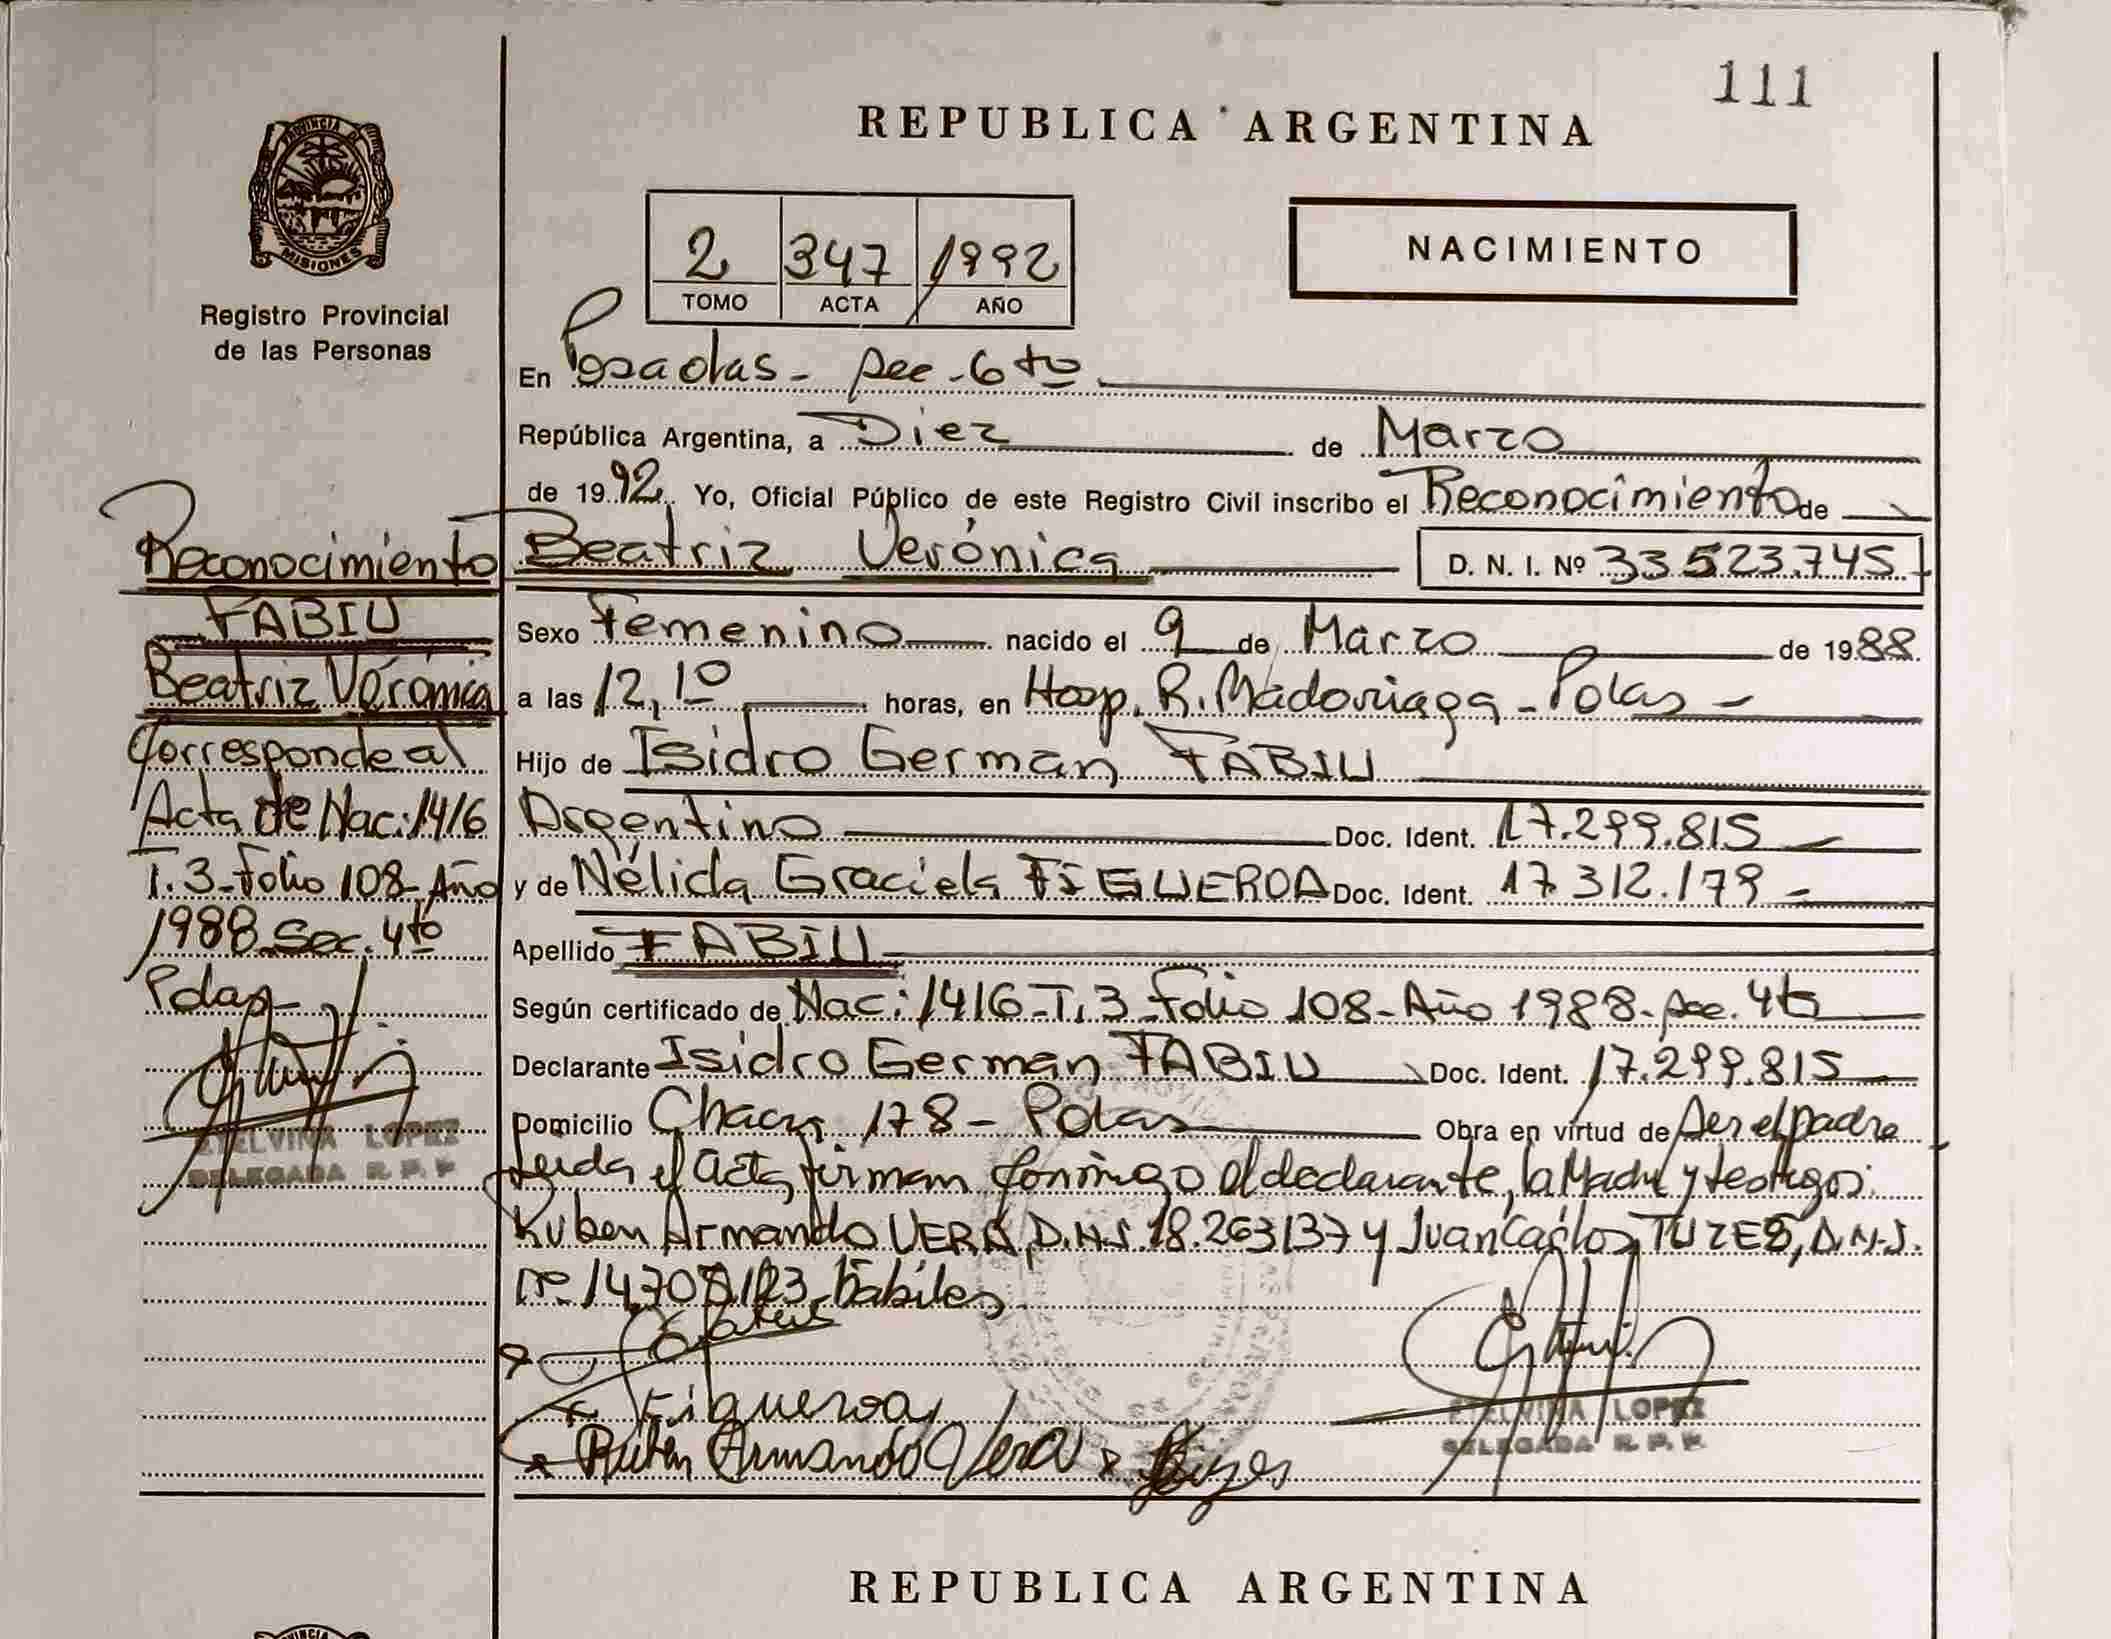 111
REPUBLICA ARGENTINA
PROVINCIA DE
MISIONES
Registro Provincial
de las Personas
2 347 1992
TOMO ACTA AÑO
NACIMIENTO
En Posadas - sec - 6to
República Argentina, a Diez de Marzo
de 1992 Yo, Oficial Público de este Registro Civil inscribo el Reconocimiento de
Beatriz Verónica D. N. I. Nº 33.523.745
Sexo Femenino nacido el 9 de Marzo de 1988
a las 12,10 horas, en Hosp. R. Madariaga - Pdas -
Hijo de Isidro German FABIU
Argentino Doc. Ident. 17.299.815
y de Nélida Graciela FIGUEROA Doc. Ident. 17.312.179 -
Apellido FABIU
Según certificado de Nac: 1416 - T. 3 - Folio 108 - Año 1988 - sec. 4to
Declarante Isidro German FABIU Doc. Ident. 17.299.815
Domicilio 178 - Pdas Obra en virtud de ser el padre
Leida el acta, firman conmigo el declarante, la Madre y testigos:
Ruben Armando VERA, D.N.I. 18.263137 y Juan Carlos D.N.I.
nº hábiles
Figueroa
Ruben Armando Vera
ETELVINA LOPEZ
DELEGADA R. P. P.
Reconocimiento
FABIU
Beatriz Verónica
Corresponde al
Acta de Nac: 1416
T. 3 - Folio 108 - Año
1988 - Sec. 4to
Pdas -
ETELVINA LOPEZ
DELEGADA R. P. P.
REPUBLICA ARGENTINA